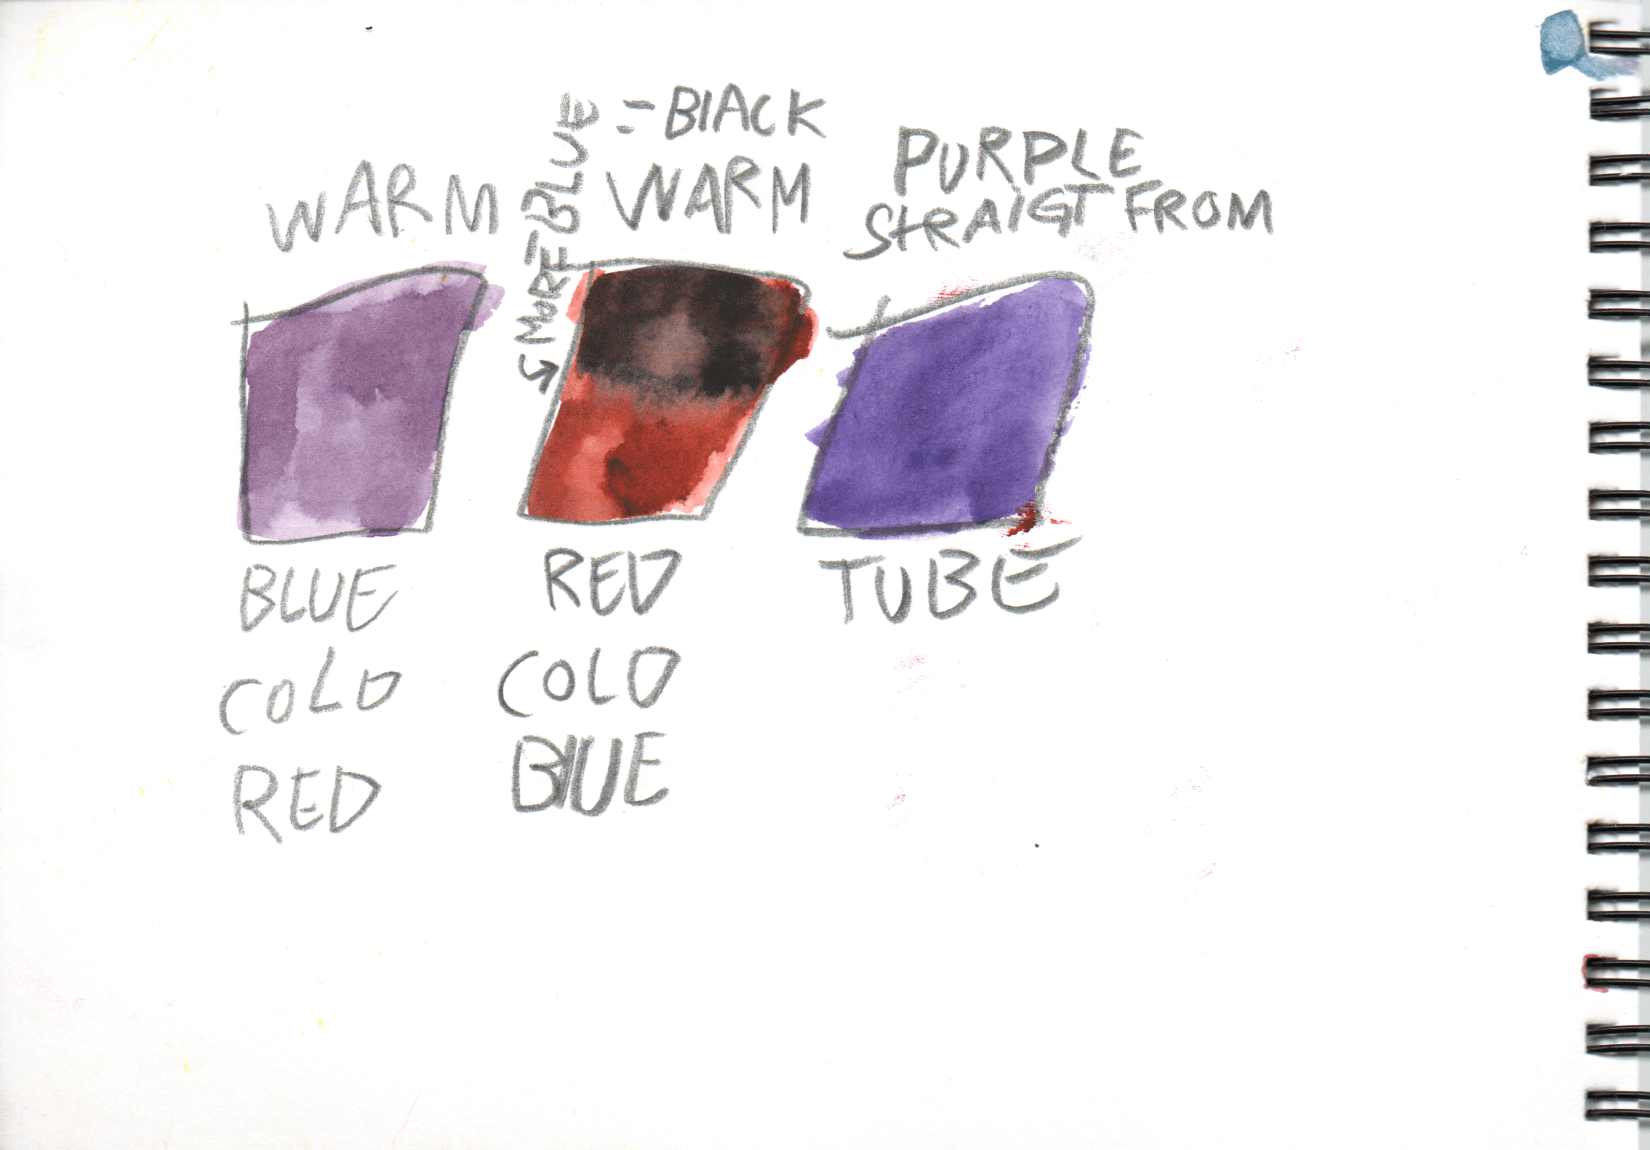 WARM
BLUE
COLD
RED
MORE BLUE
=BlACK
WARM
RED
COLD
BlUE
PURPLE
STRAIGT FROM
TUBE